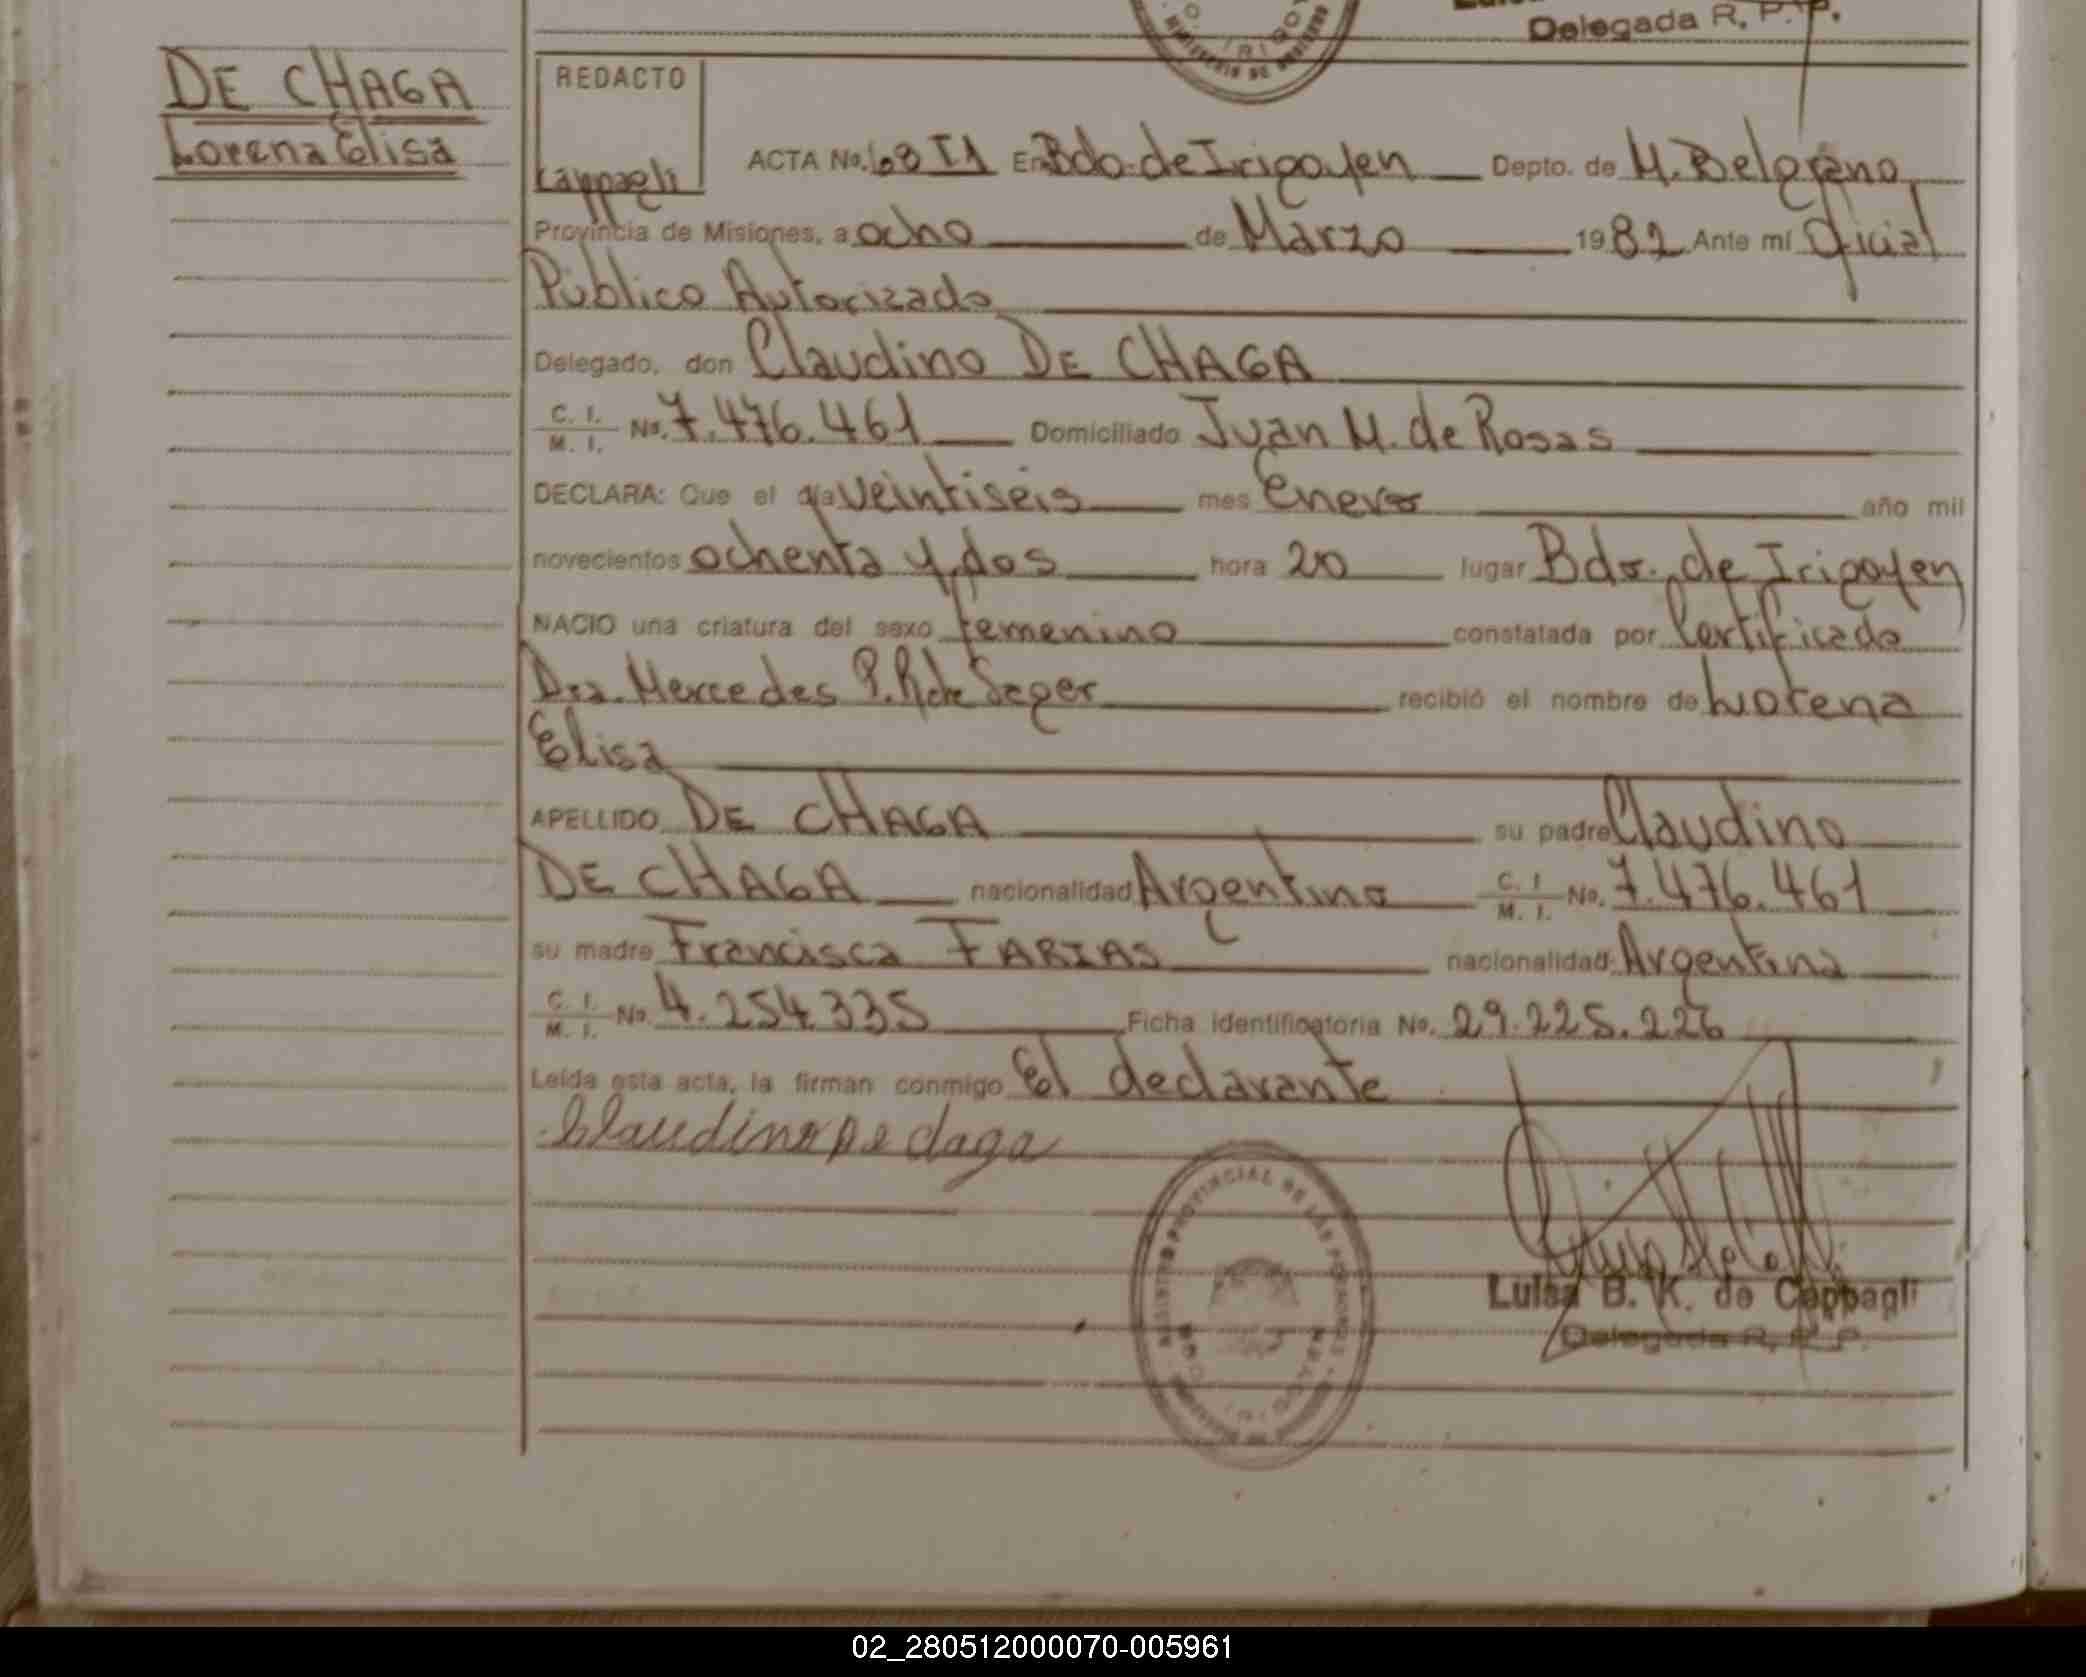 Delegada R. P. P.
DE CHAGA
Lorena Elisa
REDACTO
Cappagli
ACTA No. 68 T1 En Bdo. de Irigoyen Depto. de M. Belgrano
Provincia de Misiones, a ocho de Marzo 1982 Ante mí Oficial
Público Autorizado
Delegado, don Claudino DE CHAGA
C. I. M. I. No. 7.476.461 Domiciliado Juan M. de Rosas
DECLARA: Que el día veintiseis mes Enero año mil
novecientos ochenta y dos hora 20 lugar Bdo. de Irigoyen
NACIO una criatura del sexo femenino constatada por Certificado
Dra. Mercedes P. R. de Seger recibió el nombre de Lorena
Elisa
APELLIDO DE CHAGA su padre Claudino
DE CHAGA nacionalidad Argentino C. I. M. I. No. 7.476.461
su madre Francisca FARIAS nacionalidad Argentina
C. I. M. I. No. 4.254.335 Ficha identificatoria No. 29.225.226
Leída esta acta, la firman conmigo El declarante
Claudino De daga
REGISTRO PROVINCIAL DE LAS PERSONAS
Luisa B. K. de Cappagli
Delegada R. P. P.
02_280512000070-005961